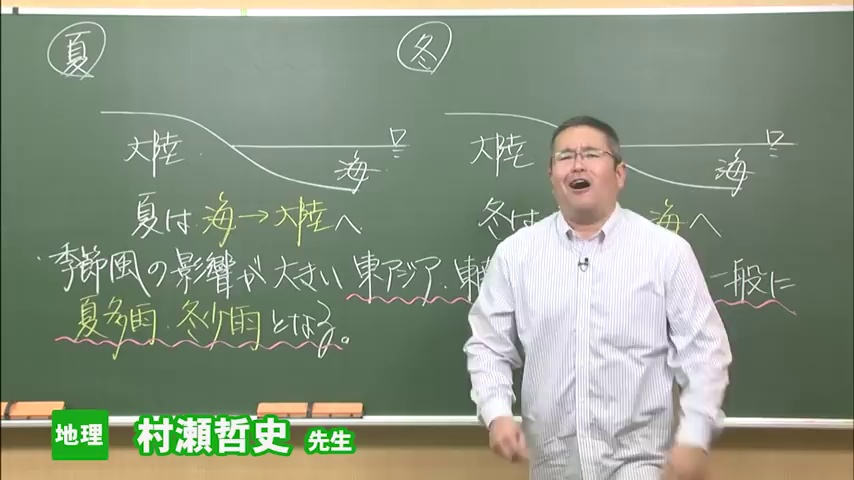 夏
冬
大陸
海
大陸
海
夏は 海→大陸へ
冬は 海へ
季節風の影響が大きい東アジア・東 一般に
夏多雨・冬少雨となる。
地理 村瀬哲史 先生